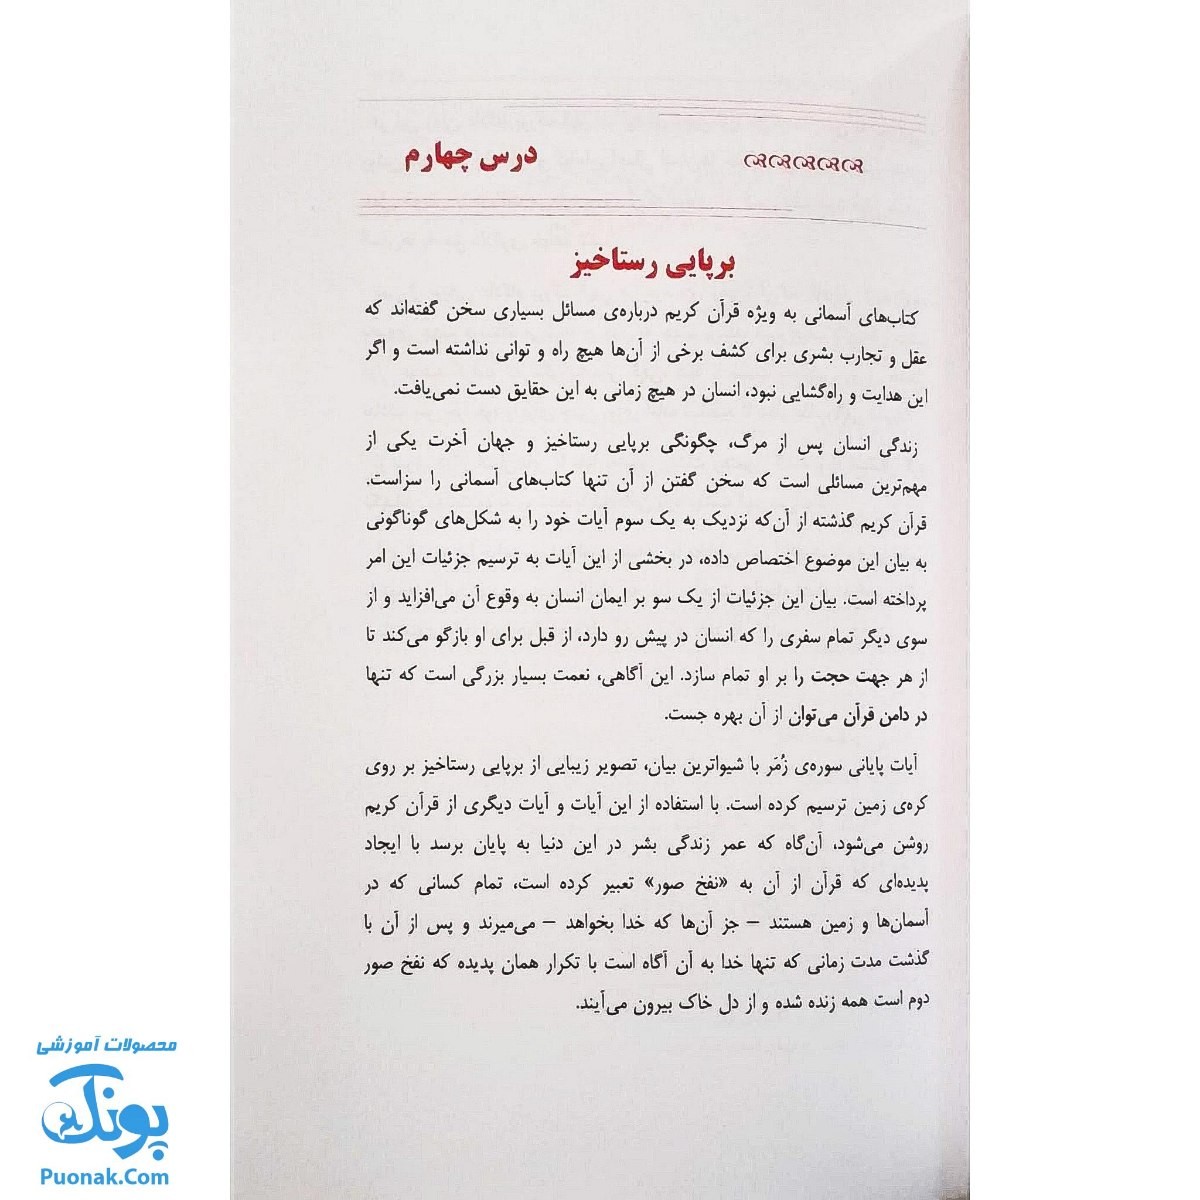 درس چهارم
برپایی رستاخیز
کتاب‌های آسمانی به ویژه قرآن کریم درباره‌ی مسائل بسیاری سخن گفته‌اند که
عقل و تجارب بشری برای کشف برخی از آن‌ها هیچ راه و توانی نداشته است و اگر
این هدایت و راه‌گشایی نبود، انسان در هیچ زمانی به این حقایق دست نمی‌یافت.
زندگی انسان پسِ از مرگ، چگونگی برپایی رستاخیز و جهان آخرت یکی از
مهم‌ترین مسائلی است که سخن گفتن از آن تنها کتاب‌های آسمانی را سزاست.
قرآن کریم گذشته از آن‌که نزدیک به یک سوم آیات خود را به شکل‌های گوناگونی
به بیان این موضوع اختصاص داده، در بخشی از این آیات به ترسیم جزئیات این امر
پرداخته است. بیان این جزئیات از یک سو بر ایمان انسان به وقوع آن می‌افزاید و از
سوی دیگر تمام سفری را که انسان در پیش رو دارد، از قبل برای او بازگو می‌کند تا
از هر جهت حجت را بر او تمام سازد. این آگاهی، نعمت بسیار بزرگی است که تنها
در دامن قرآن می‌توان از آن بهره جست.
آیات پایانی سوره‌ی زُمَر با شیواترین بیان، تصویر زیبایی از برپایی رستاخیز بر روی
کره‌ی زمین ترسیم کرده است. با استفاده از این آیات و آیات دیگری از قرآن کریم
روشن می‌شود، آن‌گاه که عمر زندگی بشر در این دنیا به پایان برسد با ایجاد
پدیده‌ای که قرآن از آن به «نفخ صور» تعبیر کرده است، تمام کسانی که در
آسمان‌ها و زمین هستند – جز آن‌ها که خدا بخواهد – می‌میرند و پس از آن با
گذشت مدت زمانی که تنها خدا به آن آگاه است با تکرار همان پدیده که نفخ صور
دوم است همه زنده شده و از دل خاک بیرون می‌آیند.
محصولات آموزشی
پونک
Puonak.Com